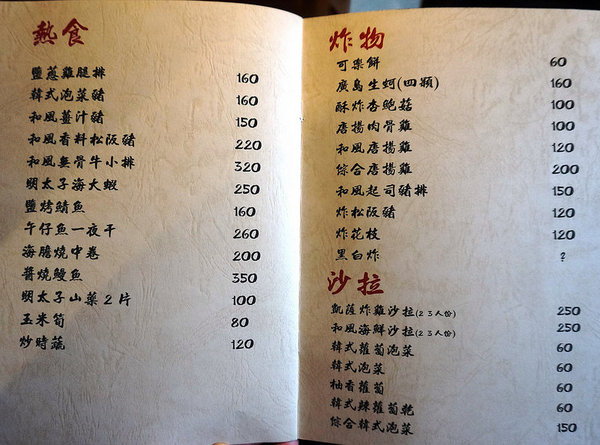 熱食
鹽蔥雞腿排 160
韓式泡菜豬 160
和風薑汁豬 150
和風香料松阪豬 220
和風無骨牛小排 320
明太子海大蝦 250
鹽烤鯖魚 160
午仔魚一夜干 260
海膽燒中卷 200
醬燒鰻魚 350
明太子山藥2片 100
玉米筍 80
炒時蔬 120
炸物
可樂餅 60
廣島生蚵(四顆) 160
酥炸杏鮑菇 100
唐揚肉骨雞 100
和風唐揚雞 120
綜合唐揚雞 200
和風起司豬排 150
炸松阪豬 120
炸花枝 120
黑白炸 ?
沙拉
凱薩炸雞沙拉(2 3人份) 250
和風海鮮沙拉(2 3人份) 250
韓式蘿蔔泡菜 60
韓式泡菜 60
柚香蘿蔔 60
韓式辣蘿蔔乾 60
綜合韓式泡菜 150